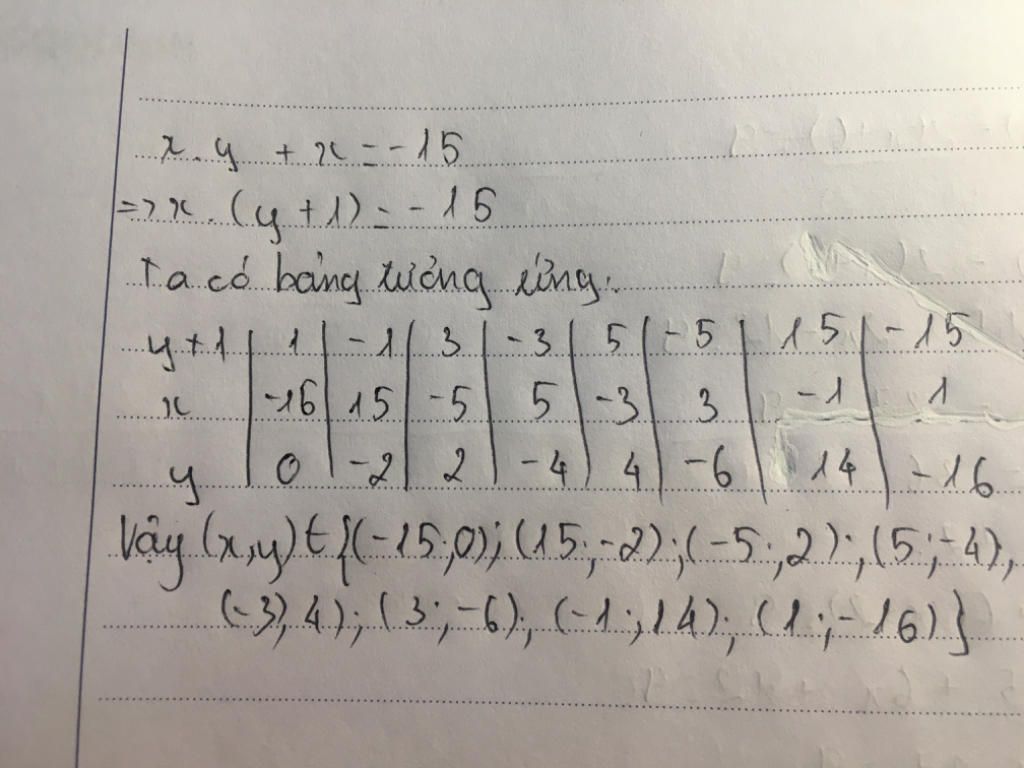 x.y + x = -15
=> x.(y+1) = -15
Ta có bảng tương ứng:
y+1 | 1 | -1 | 3 | -3 | 5 | -5 | 15 | -15
x | -16 | 15 | -5 | 5 | -3 | 3 | -1 | 1
y | 0 | -2 | 2 | -4 | 4 | -6 | 14 | -16
Vậy (x,y) ∈ {(-15;0); (15;-2); (-5;2); (5;-4),
(-3;4); (3;-6); (-1;14); (1;-16)}